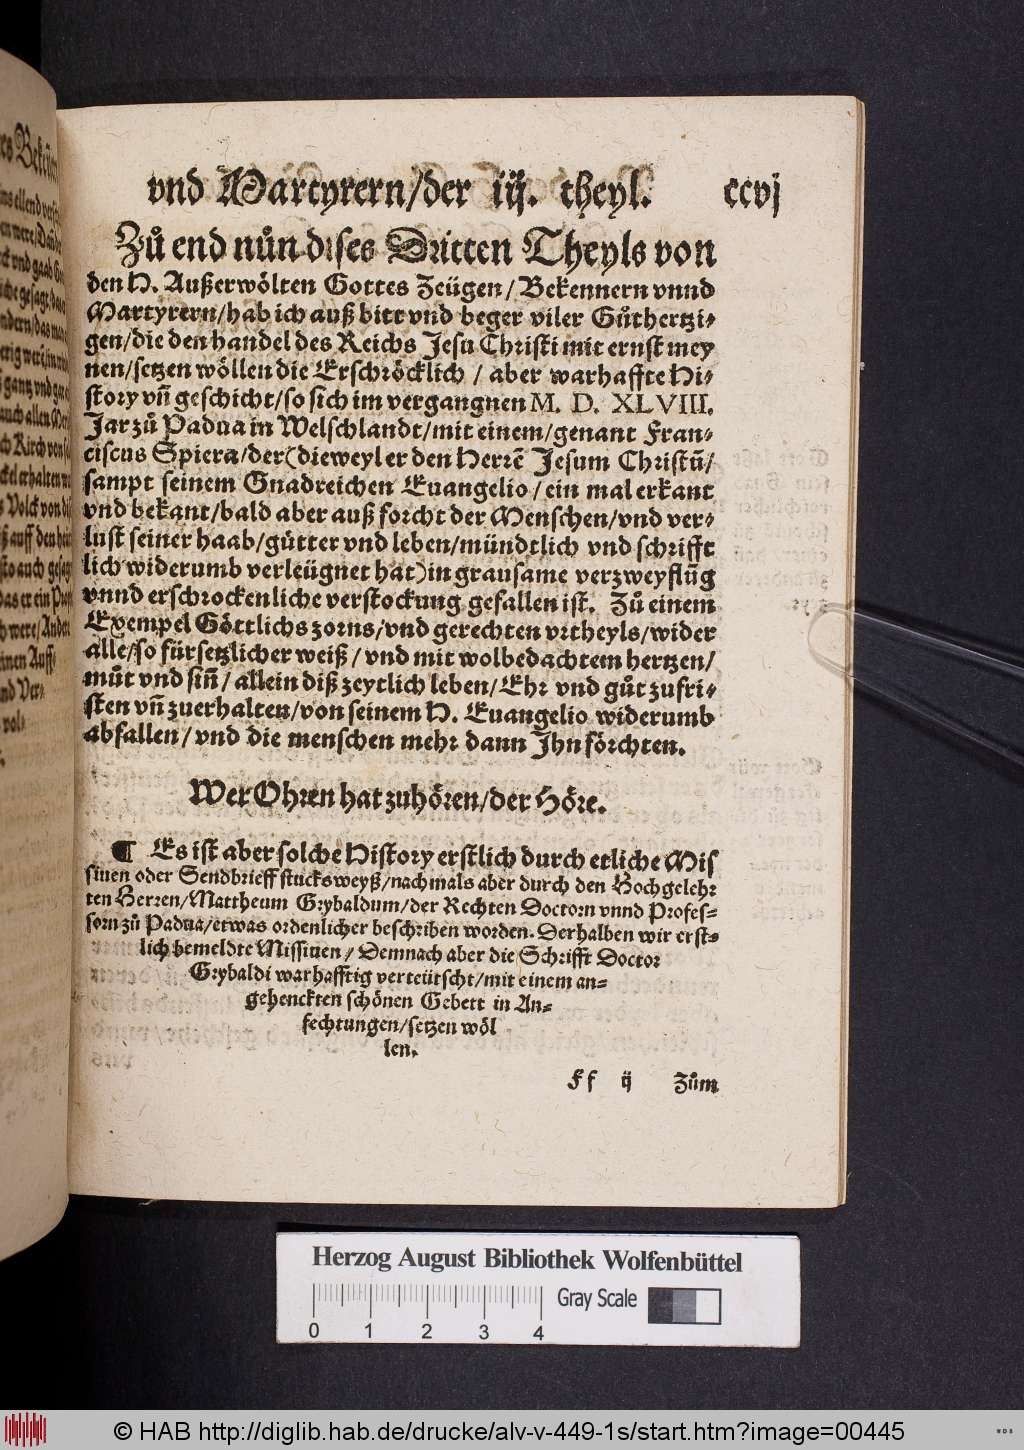 vnd Martyrern/der iij. theyl. ccvj
Zů end nůn dises Dritten Theyls von
den H. Außerwölten Gottes Zeügen/Bekennern vnnd
Martyrern/hab ich auß bitt vnd beger viler Gůthertzi⸗
gen/die den handel des Reichs Jesu Christi mit ernst mey
nen/setzen wöllen die Erschröcklich/aber warhaffte Hi⸗
story vñ geschicht/so sich im vergangnen M. D. XLVIII.
Jar zů Padua in Welschlandt/mit einem/genant Fran⸗
ciscus Spiera/der(dieweyl er den Herrē Jesum Christū/
sampt seinem Gnadreichen Euangelio/ein mal erkant
vnd bekant/bald aber auß forcht der Menschen/vnd ver⸗
lust seiner haab/gůtter vnd leben/mündtlich vnd schrifft
lich widerumb verleügnet hat)in grausame verzweyflūg
vnnd erschrockenliche verstockung gefallen ist. Zů einem
Exempel Göttlichs zorns/vnd gerechten vrtheyls/wider
alle/so fürsetzlicher weiß/vnd mit wolbedachtem hertzen/
můt vnd siñ/allein diß zeytlich leben/Ehr vnd gůt zufri⸗
sten vñ zuerhalten/von seinem H. Euangelio widerumb
abfallen/vnd die menschen mehr dann Jhn förchten.
Wer Ohren hat zuhören/der Höre.
¶ Es ist aber solche History erstlich durch etliche Mis
siuen oder Sendbrieff stucksweyß/nachmals aber durch den Hochgelehr
ten Herren/Mattheum Grybaldum/der Rechten Doctorn vnnd Profes⸗
sorn zů Padua/etwas ordenlicher beschriben worden. Derhalben wir erst⸗
lich bemeldte Missiuen/Demnach aber die Schrifft Doctor
Grybaldi warhafftig verteütscht/mit einem an⸗
gehenckten schönen Gebett in An⸗
fechtungen/setzen wöl
len.
Ff ij Zům
Herzog August Bibliothek Wolfenbüttel
Gray Scale
0 1 2 3 4
© HAB http://diglib.hab.de/drucke/alv-v-449-1s/start.htm?image=00445